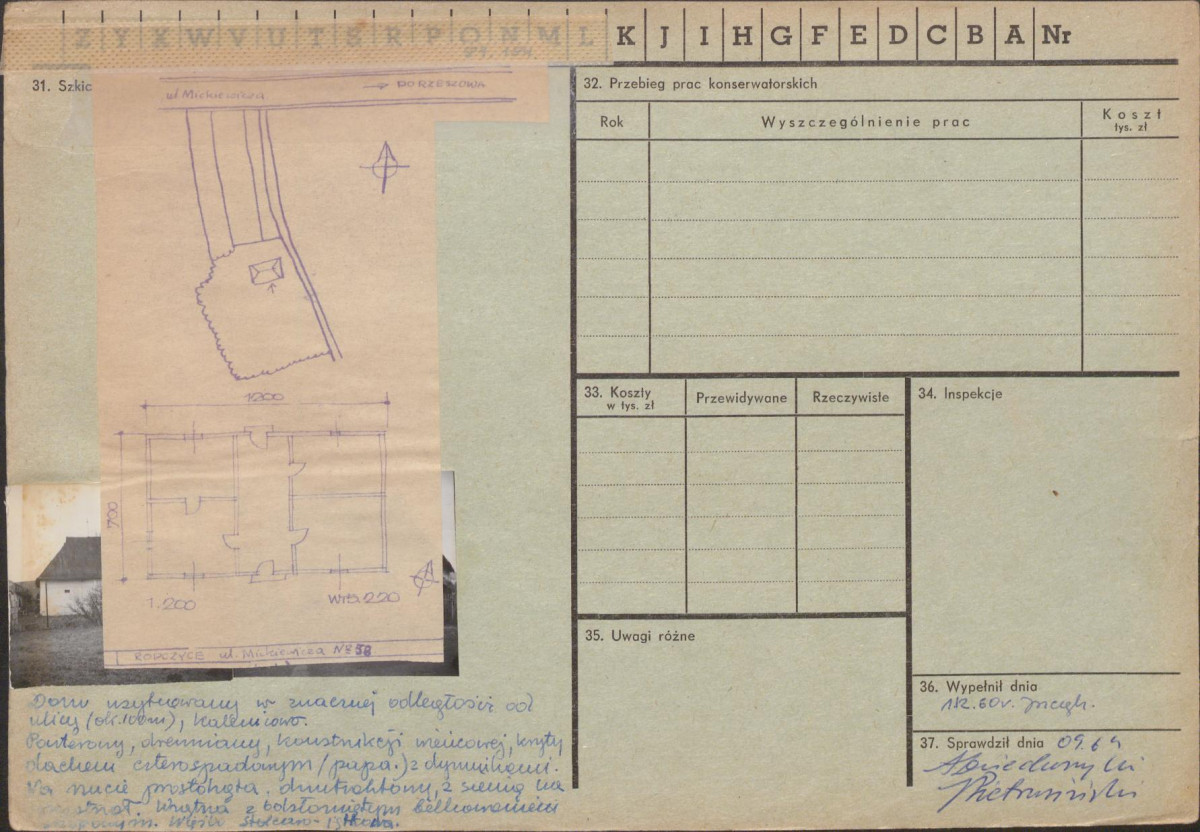 Z Y X W V U T S R P O N M L K J I H G F E D C B A Nr
31. Szkic
ul. Mickiewicza
→ DO RZESZOWA
1200
700
1:200
Wys. 220
ROPCZYCE ul. Mickiewicza № 58
Dom usytuowany w znacznej odległości od
ulicy (ok. 100m), kalenicowo.
Parterowy, drewniany, konstrukcji wieńcowej, kryty
dachem czterospadowym /papa.) z dymnikami.
Na rzucie prostokąta. dwutraktowy, z sienią na
Wnętrza z odsłoniętym belkowaniem
32. Przebieg prac konserwatorskich
Rok
Wyszczególnienie prac
Koszt
tys. zł
33. Koszty
w tys. zł
Przewidywane
Rzeczywiste
34. Inspekcje
35. Uwagi różne
36. Wypełnił dnia
37. Sprawdził dnia 09.64